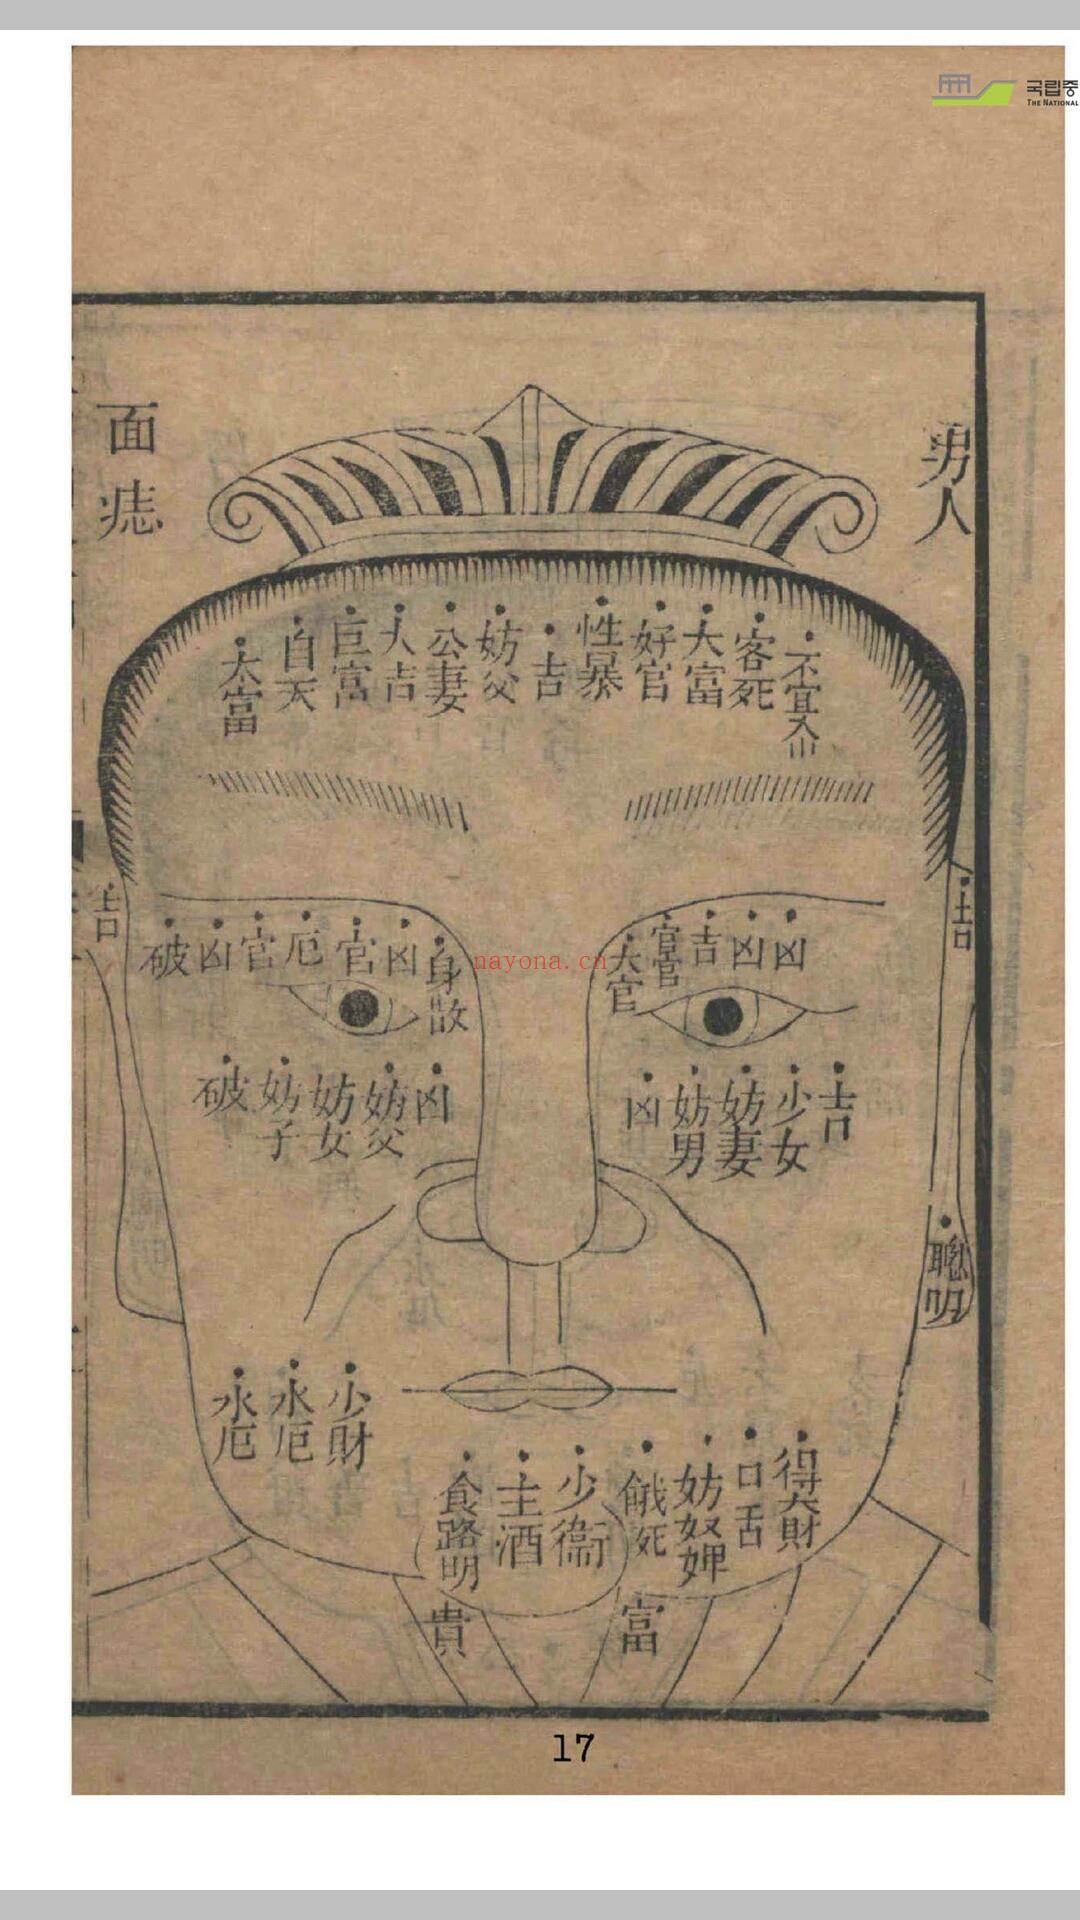 국립중
THE NATIONAL
男人
面痣
不宜入山
客死
大富
好官
性暴
吉
妨父
公妻
大吉
巨富
自天
大富
吉
凶
凶
吉
官
大官
身散
凶
官
厄
官
凶
破
吉
nayona.cn
吉
少女
妨妻
妨男
凶
凶
妨父
妨女
妨子
破
聰明
少財
水厄
水厄
得大財
口舌
妨奴婢
餓死
少
主酒
食路明
富
貴
17